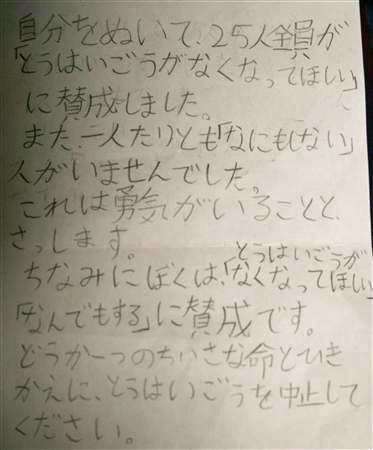 自分をぬいて、25人全員が
「とうはいごうがなくなってほしい」
に賛成しました。
また、一人たりとも「なにもしない」
人がいませんでした。
これは勇気がいることと、
さっします。
ちなみにぼくは、「とうはいごうがなくなってほしい」
「なんでもする」に賛成です。
どうか一つのちいさな命とひき
かえに、とうはいごうを中止して
ください。